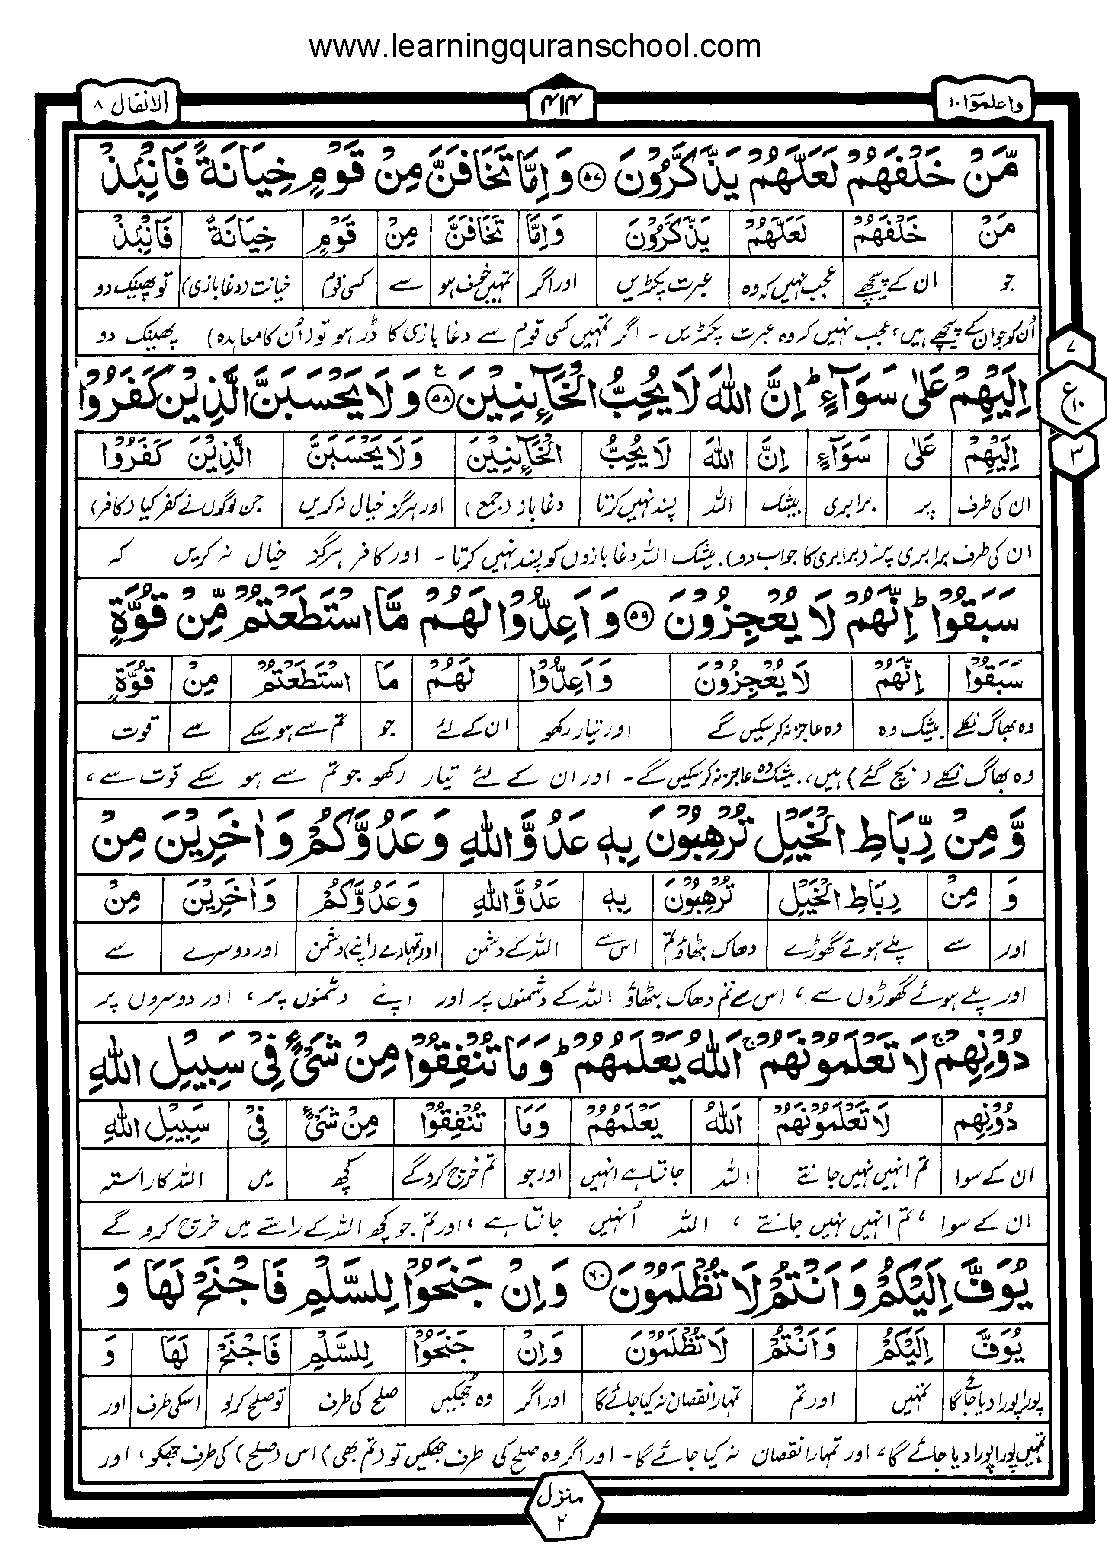 www.learningquranschool.com
واعلموا ١٠ ۴۱۴ الانفال ۸
مَّنْ خَلْفَهُمْ لَعَلَّهُمْ يَذَّكَّرُوْنَ ﴿۵۷﴾ وَاِمَّا تَخَافَنَّ مِنْ قَوْمٍ خِيَانَةً فَانْۢبِذْ
مَنْ خَلْفَهُمْ لَعَلَّهُمْ يَذَّكَّرُوْنَ وَاِمَّا تَخَافَنَّ مِنْ قَوْمٍ خِيَانَةً فَانْۢبِذْ
جو ان کے پیچھے عجب نہیں کہ وہ عبرت پکڑیں اور اگر تمہیں خوف ہو سے کسی قوم خیانت (دغا بازی) تو پھینک دو
اُن کو جو ان کے پیچھے ہیں، عجب نہیں کہ وہ عبرت پکڑیں ۔ اگر تمہیں کسی قوم سے دغا بازی کا ڈر ہو تو (اُن کا معاہدہ) پھینک دو
۷
ع
۱۰
۳
اِلَيْهِمْ عَلٰى سَوَآءٍ ؕ اِنَّ اللّٰهَ لَا يُحِبُّ الْخَآئِنِيْنَ ﴿۵۸﴾ ع وَلَا يَحْسَبَنَّ الَّذِيْنَ كَفَرُوْا
اِلَيْهِمْ عَلٰى سَوَآءٍ اِنَّ اللّٰهَ لَا يُحِبُّ الْخَآئِنِيْنَ وَلَا يَحْسَبَنَّ الَّذِيْنَ كَفَرُوْا
ان کی طرف پر برابری بیشک اللہ پسند نہیں کرتا دغا باز (جمع) اور ہرگز خیال نہ کریں جن لوگوں نے کفر کیا (کافر)
ان کی طرف برابری پر (برابری کا جواب دو)، بیشک اللہ دغا بازوں کو پسند نہیں کرتا ۔ اور کافر ہرگز خیال نہ کریں کہ
سَبَقُوْا ؕ اِنَّهُمْ لَا يُعْجِزُوْنَ ﴿۵۹﴾ وَاَعِدُّوْا لَهُمْ مَّا اسْتَطَعْتُمْ مِّنْ قُوَّةٍ
سَبَقُوْا اِنَّهُمْ لَا يُعْجِزُوْنَ وَاَعِدُّوْا لَهُمْ مَا اسْتَطَعْتُمْ مِنْ قُوَّةٍ
وہ بھاگ نکلے بیشک وہ وہ عاجز نہ کر سکیں گے اور تیار رکھو ان کے لئے جو تم سے ہو سکے سے قوت
وہ بھاگ نکلے (بچ گئے) ہیں، بیشک وہ عاجز نہ کر سکیں گے ۔ اور ان کے لئے تیار رکھو جو تم سے ہو سکے قوت سے،
وَّ مِنْ رِّبَاطِ الْخَيْلِ تُرْهِبُوْنَ بِهٖ عَدُوَّ اللّٰهِ وَعَدُوَّكُمْ وَاٰخَرِيْنَ مِنْ
وَ مِنْ رِبَاطِ الْخَيْلِ تُرْهِبُوْنَ بِهٖ عَدُوَّ اللّٰهِ وَعَدُوَّكُمْ وَاٰخَرِيْنَ مِنْ
اور سے پلے ہوئے گھوڑے دھاک بٹھاؤ تم اس سے اللہ کے دشمن اور تمہارے (اپنے) دشمن اور دوسرے سے
اور پلے ہوئے گھوڑوں سے، اس سے تم دھاک بٹھاؤ اللہ کے دشمنوں پر اور اپنے دشمنوں پر، اور دوسروں پر
دُوْنِهِمْ ۚ لَا تَعْلَمُوْنَهُمْ ۚ اَللّٰهُ يَعْلَمُهُمْ ؕ وَمَا تُنْفِقُوْا مِنْ شَيْءٍ فِيْ سَبِيْلِ اللّٰهِ
دُوْنِهِمْ لَا تَعْلَمُوْنَهُمْ اَللّٰهُ يَعْلَمُهُمْ وَمَا تُنْفِقُوْا مِنْ شَيْءٍ فِيْ سَبِيْلِ اللّٰهِ
ان کے سوا تم انہیں نہیں جانتے اللہ جانتا ہے انہیں اور جو تم خرچ کرو گے کچھ میں اللہ کا راستہ
ان کے سوا، تم انہیں نہیں جانتے، اللہ اُنہیں جانتا ہے، اور تم جو کچھ اللہ کے راستے میں خرچ کرو گے
يُوَفَّ اِلَيْكُمْ وَاَنْتُمْ لَا تُظْلَمُوْنَ ﴿۶۰﴾ وَاِنْ جَنَحُوْا لِلسَّلْمِ فَاجْنَحْ لَهَا وَ
يُوَفَّ اِلَيْكُمْ وَاَنْتُمْ لَا تُظْلَمُوْنَ وَاِنْ جَنَحُوْا لِلسَّلْمِ فَاجْنَحْ لَهَا وَ
پورا پورا دیا جائے گا تمہیں اور تم تمہارا نقصان نہ کیا جائے گا اور اگر وہ جھکیں صلح کی طرف تو صلح کر لو اسکی طرف اور
تمہیں پورا پورا دیا جائے گا، اور تمہارا نقصان نہ کیا جائے گا ۔ اور اگر وہ صلح کی طرف جھکیں تو (تم بھی) اس (صلح) کی طرف جھکو، اور
منزل
۲